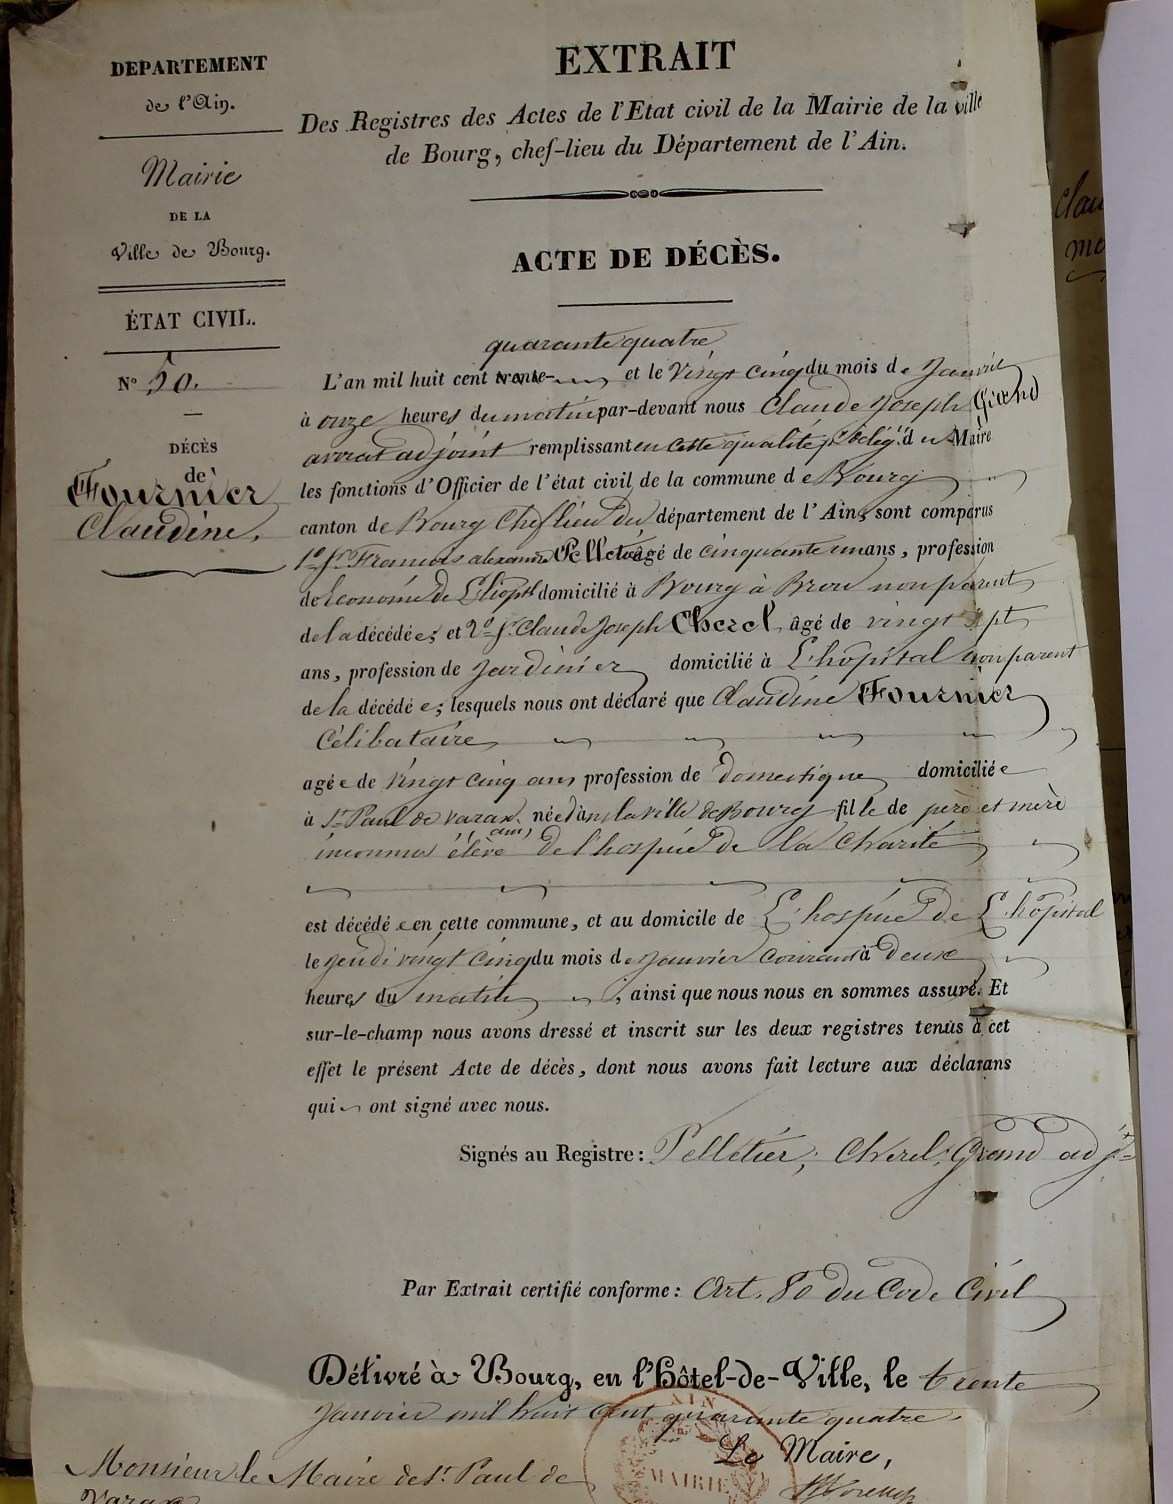 DEPARTEMENT
de l'Ain.
Mairie
DE LA
Ville de Bourg.
ÉTAT CIVIL.
N° 50.
DÉCÈS
de
Fournier
Claudine.
EXTRAIT
Des Registres des Actes de l'Etat civil de la Mairie de la ville
de Bourg, chef-lieu du Département de l'Ain.
ACTE DE DÉCÈS.
quarante quatre
L'an mil huit cent trente- et le vingt cinq du mois de Janvier
à onze heures du matin par-devant nous Claude Joseph Grand
avocat adjoint remplissant en cette qualité du Maire
les fonctions d'Officier de l'état civil de la commune de Bourg
canton de Bourg Chef lieu du département de l'Ain, sont comparus
1° Sr. Francois alexandre Pelletier âgé de cinquante un ans, profession
de économe de L'hopital domicilié à Bourg à Brou non parent
de la décédée; et 2° Sr. Claude Joseph Cherel, âgé de vingt sept
ans, profession de Jardinier domicilié à L'hopital non parent
de la décédée; lesquels nous ont déclaré que Claudine Fournier
Célibataire
agée de vingt cinq ans profession de domestique domiciliée
à St. Paul de varax née dans la ville de Bourg fille de père et mère
inconnus élève de l'hospice de la Charité
est décédée en cette commune, et au domicile de L'hospice de L'hôpital
le jeudi vingt cinq du mois de Janvier courant à deux
heures du matin, ainsi que nous nous en sommes assuré. Et
sur-le-champ nous avons dressé et inscrit sur les deux registres tenus à cet
effet le présent Acte de décès, dont nous avons fait lecture aux déclarans
qui ont signé avec nous.
Signés au Registre: Pelletier, Cherel, Grand adjt
Par Extrait certifié conforme: Art. 80 du Code Civil
Délivré à Bourg, en l'Hôtel-de-Ville, le trente
Janvier mil huit cent quarante quatre.
Le Maire,
AIN
MAIRIE
Monsieur le Maire de St. Paul de
Varax